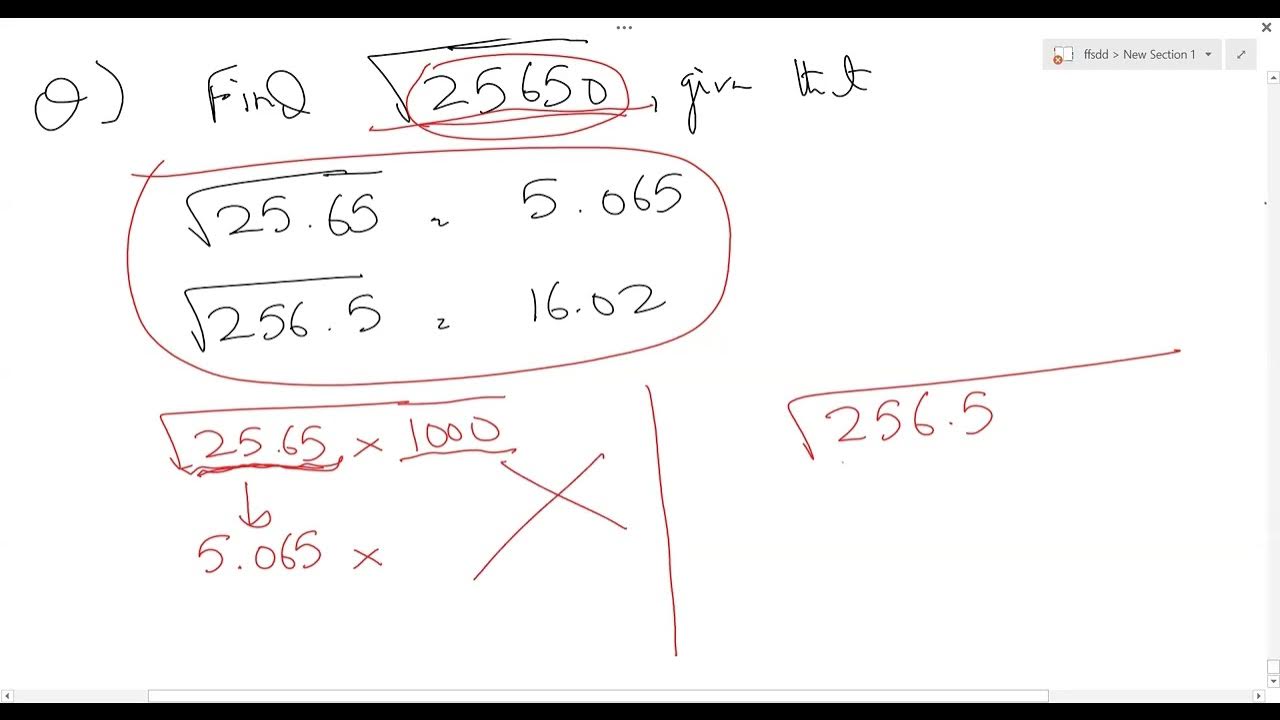 ffsdd > New Section 1
Q) Find √25650, given that
√25.65 = 5.065
√256.5 = 16.02
√25.65 × 1000
5.065 ×
√256.5